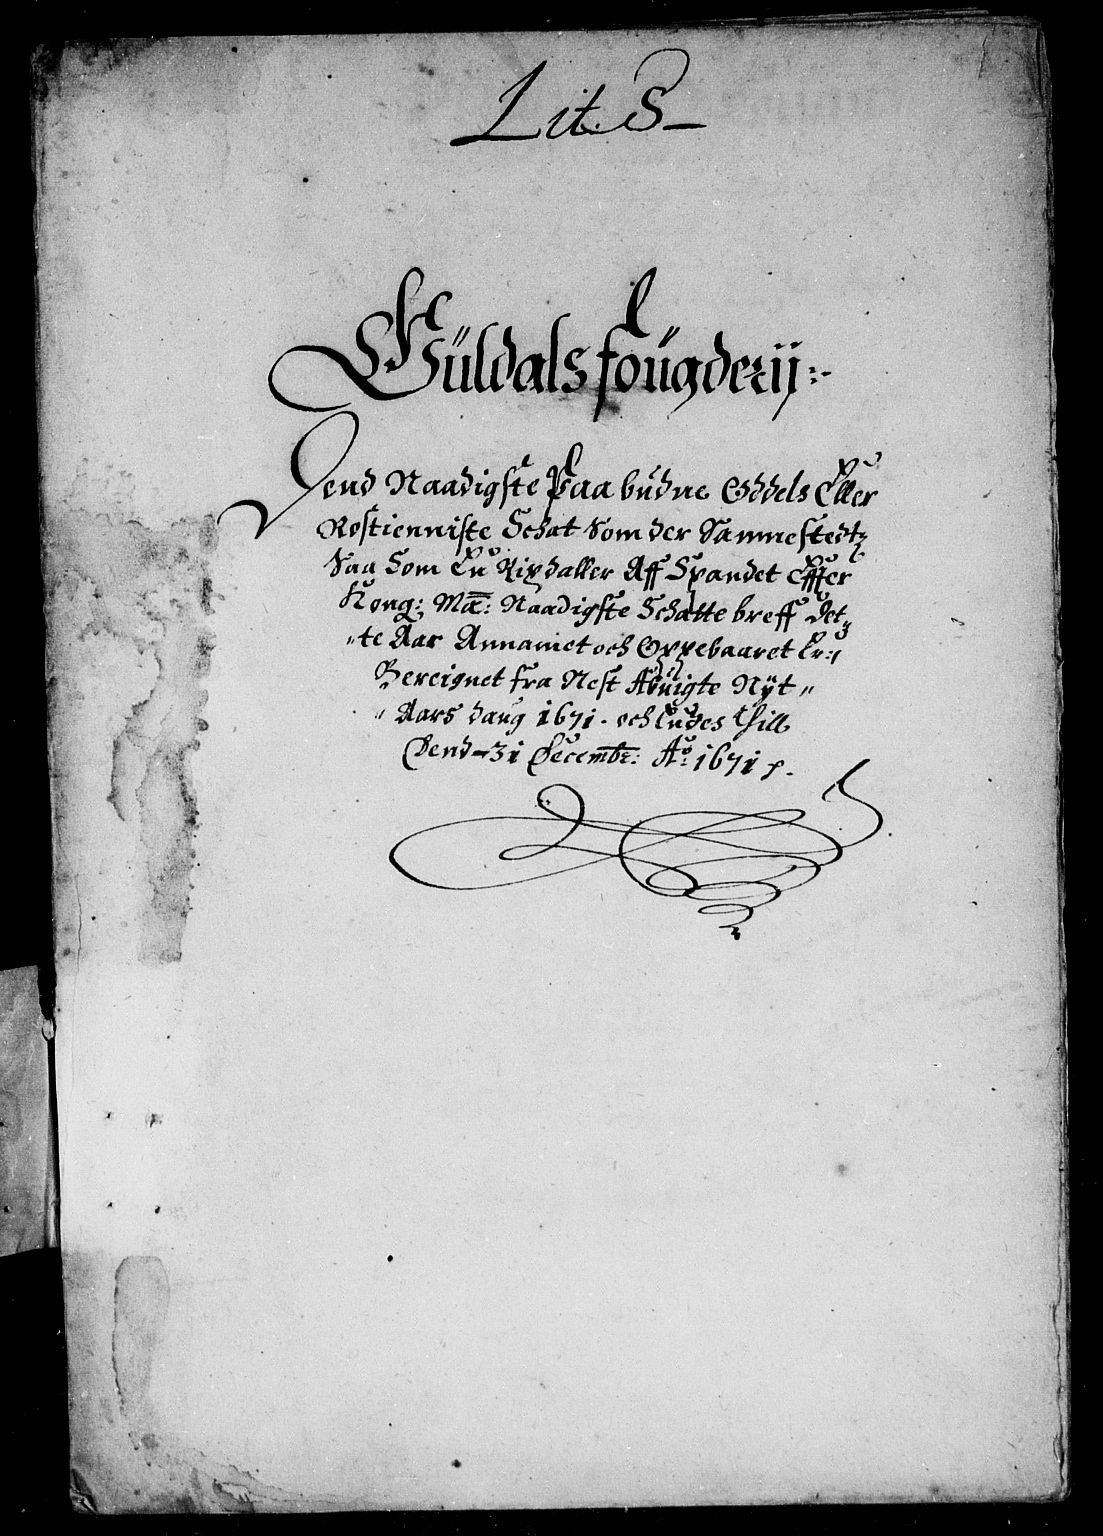 Lit: S
Güldals fougderij:
Dend Naadigste Paabudne Oddels Eller
Rostienniste Schat Som der Sammestedtz
Saa Som En Rixdaller Aff Spandet Effter
Kong: Ma: Naadigste Schatte breff det
"te Aar Annamet och Oppebaaret Er:
Bereignet fra Nest Afvuigte Nyt"
"Aars daug 1671. och Endes Thill
Dend 31 Decembr: Ao: 1671